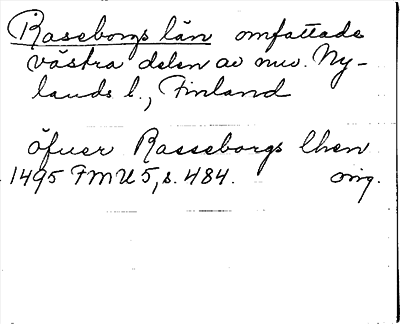 Raseborgs län omfattade
västra delen av nuv. Ny-
lands l., Finland
öfuer Rasseborgs lhen
1495 FMU 5, s. 484. orig.